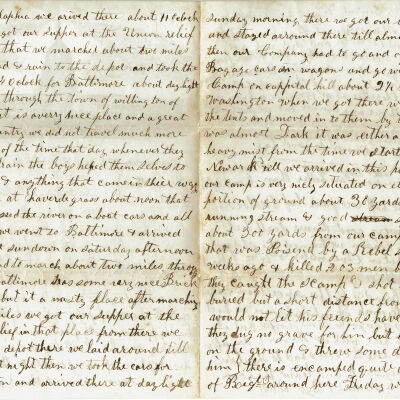 laphia we arived there about 11 Oclock
got our supper at the Union relief
that we marched about two miles
d & ruin to the depot and took the
4 oclock for Baltimore about daylight
through the Town of willing ton of
it is avery nice place and a great
untry we did not travel much more
of the time that day whenever they
rain the boys helped themselves to
& anything that came in their way
at haverdegrass about noon that
ssed the river on a boat cars and all
we went to Baltimore & arrived
t sundown on Saturday afternoon
d to march about two miles throug
altimore has some very nice Brick
but it a nasty place after marching
iles we got our supper at the
lief in that place from there we
depot there we laid around till
at night then we took the cars for
on and arrived there at day light
Sunday morning there we got our
and stayed around there till alm
then our Company had to go and
Bagage cars in wagons and go w
Camp on cappital hill about 2½
Washington when we got there w
the tents and moved in to them by t
was almost Dark it was either a
heavy mist from the time we start
Newark till we arrived in this p
our camp is very nicely situated on el
portion of ground about 30 yards
running stream & good
about 300 yards from our cam
that was Poisend by a Rebel s
weeks ago & killed 203 men b
they caught the scamp & shot
buried but a short distance from
would not let his freinds have
they dug no grave for him but
on the ground & threw some d
him there is encamped quite a
of Reigt around here Friday w